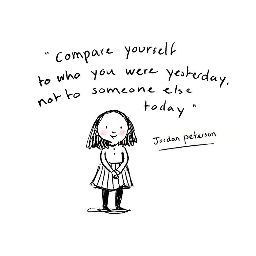 "Compare yourself
to who you were yesterday,
not to someone else
today"
Jordan peterson